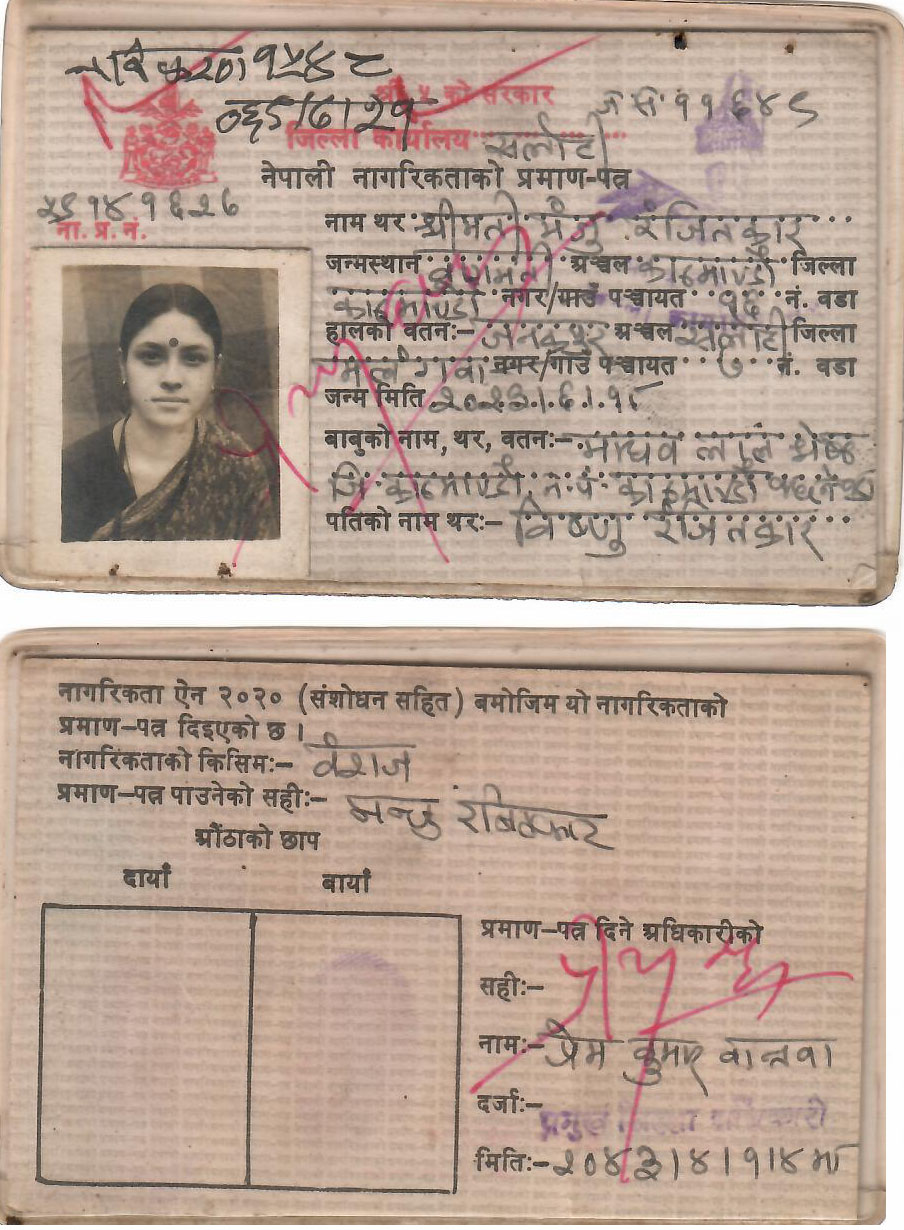 ०६५/६/२१
श्री ५ को सरकार
जिल्ला कार्यालय सर्लाही
नेपाली नागरिकताको प्रमाण-पत्र
ना. प्र. नं.
नाम थर श्रीमती मंजु रंजितकार
जन्मस्थान बागमती अञ्चल काठमाण्डौ जिल्ला
काठमाण्डौ नगर/गाउँ पञ्चायत १६ नं. वडा
हालको वतन:- जनकपुर अञ्चल सर्लाही जिल्ला
मलंगवा नगर/गाउँ पञ्चायत ७ नं. वडा
जन्म मिति २०२३।६।१८
बाबुको नाम, थर, वतन:- माधव लाल श्रेष्ठ
जि काठमाण्डौ न.पं. काठमाण्डौ
पतिको नाम थर:- विष्णु रंजितकार
नागरिकता ऐन २०२० (संशोधन सहित) बमोजिम यो नागरिकताको
प्रमाण-पत्र दिइएको छ ।
नागरिकताको किसिम:- वंशज
प्रमाण-पत्र पाउनेको सही:-
औंठाको छाप
दायाँ बायाँ
प्रमाण-पत्र दिने अधिकारीको
सही:-
नाम:- प्रेम कुमार
दर्जा:- प्रमुख जिल्ला अधिकारी
मिति:- २०४३।४।१४